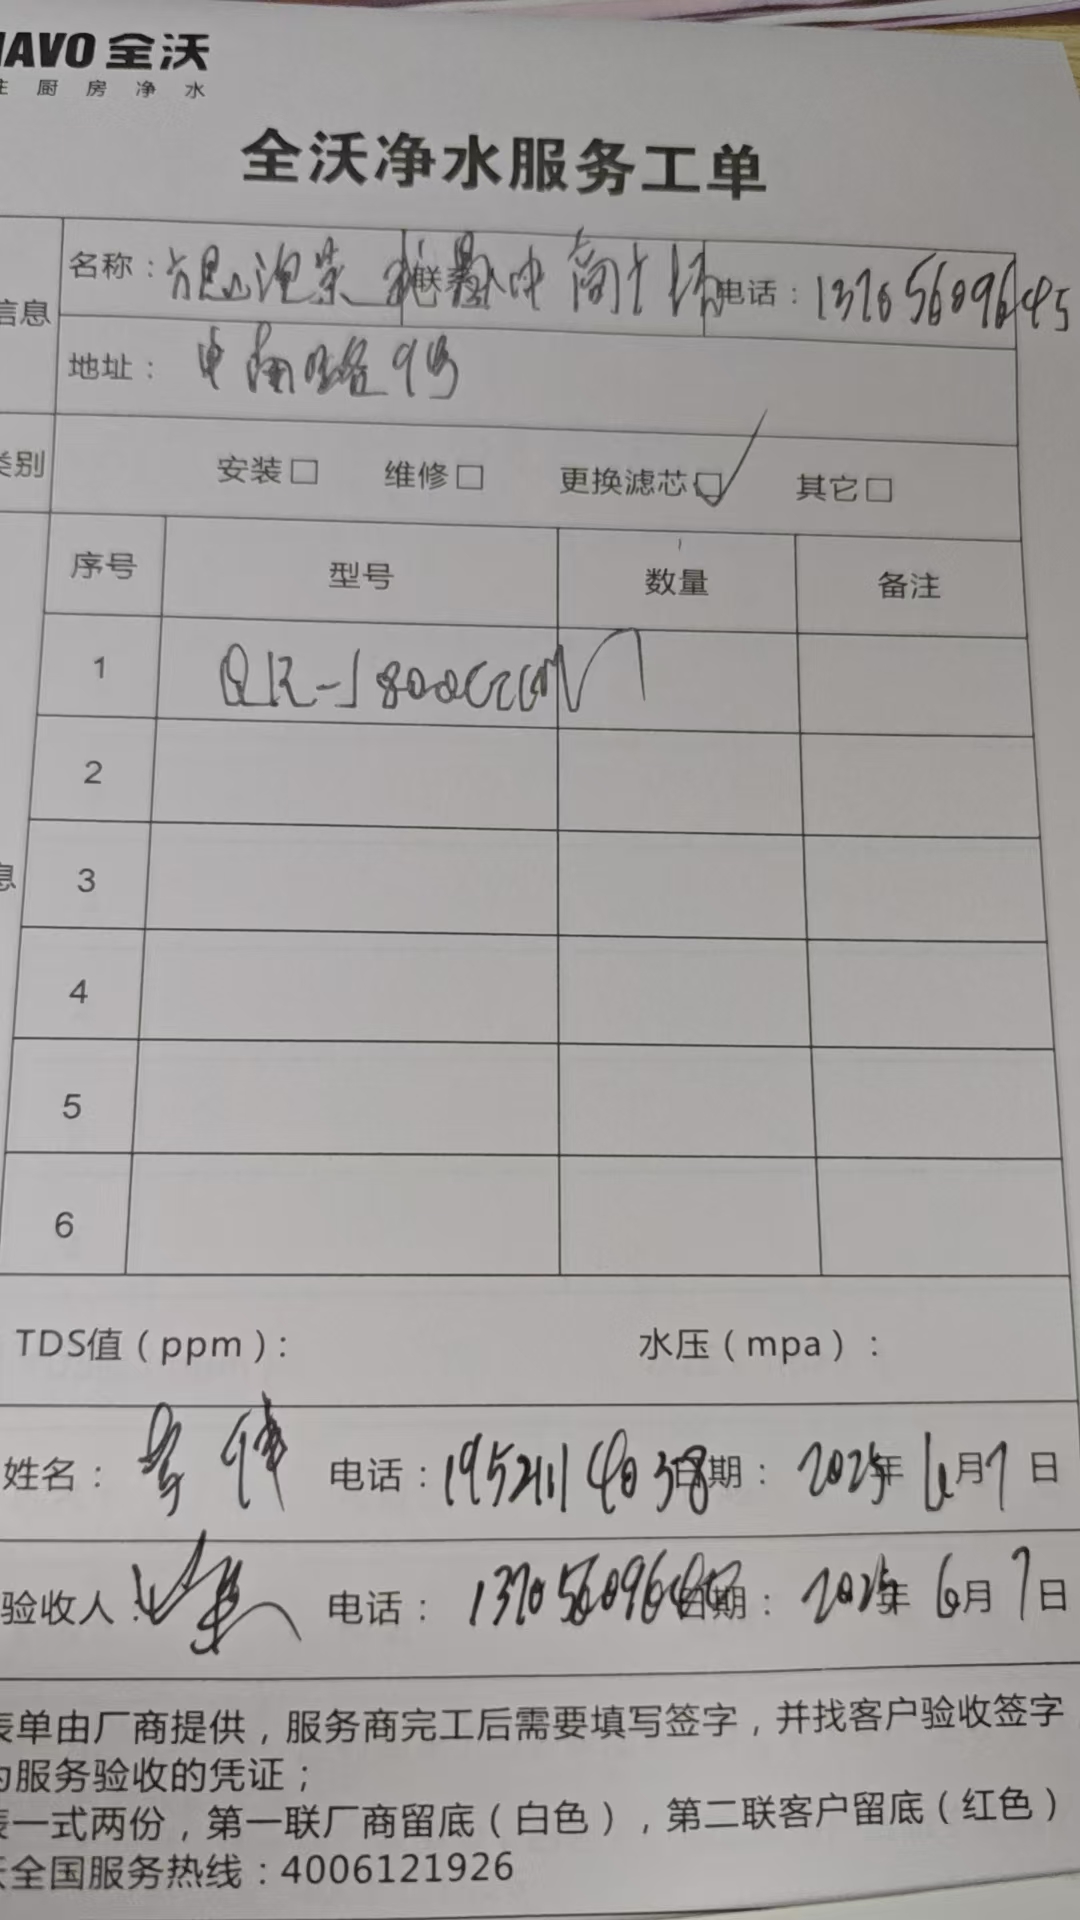 NAVO 全沃
住厨房净水
全沃净水服务工单
信息
名称： 联系人 电话：13705609645
地址： 路9号
类别 安装□ 维修□ 更换滤芯□✓ 其它□
序号 型号 数量 备注
1 QR-J800C 1
2
息 3
4
5
6
TDS值（ppm）: 水压（mpa）:
姓名： 电话：19521114038 日期：2025年6月7日
验收人： 电话：137056096 日期：2025年6月7日
表单由厂商提供，服务商完工后需要填写签字，并找客户验收签字
为服务验收的凭证；
表一式两份，第一联厂商留底（白色），第二联客户留底（红色）
沃全国服务热线：4006121926